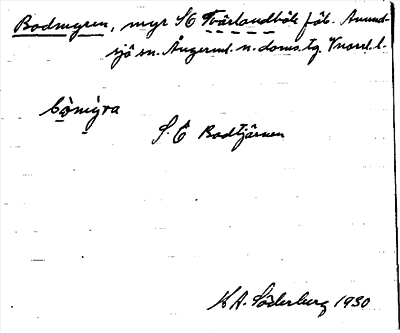 Bodmyren, myr SÖ Tvärlandböle fäb. Anund-
sjö sn. Ångerml. n. doms. tg. Vnorrl. l.
bòmỳra
S. Ö Bodtjärnen
K A. Söderberg 1930